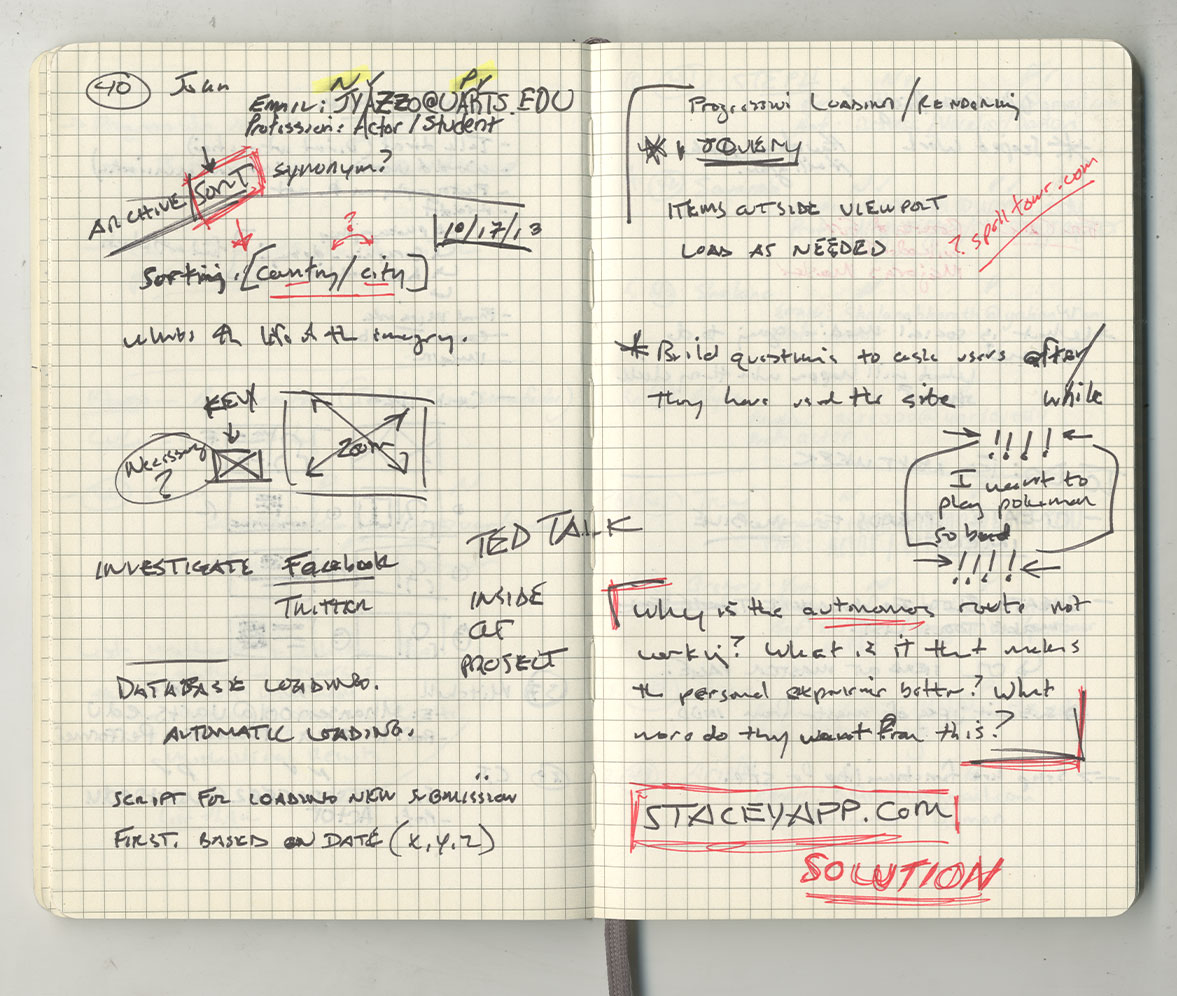 40
Juan
NY PY
Email: JYAZZO@UARTS.EDU
Profession: Actor/Student
ARCHIVE/SORT synonym?
10/17/13
?
Sorting. [country/city]
whats the life of the imagery.
KEY
Necessary
?
Zoom
TED TALK
INVESTIGATE Facebook
TWITTER
INSIDE
OF
PROJECT
DATABASE LOADING.
AUTOMATIC LOADING.
SCRIPT FOR LOADING NEW SUBMISSION
FIRST. BASED ON DATE (X, Y, Z)
Progressive LOADING/RENDERING
* JQUERY
ITEMS OUTSIDE VIEWPORT
LOAD AS NEEDED
?. spolltown.com
* Build questions to ask users after/
they have used the site while
!!!!
I want to
play pokemon
so bad
!!!!
Why is the autonomos route not
working? What is it that makes
the personal experience better? What
more do they want from this?
STACEYAPP.COM
SOLUTION